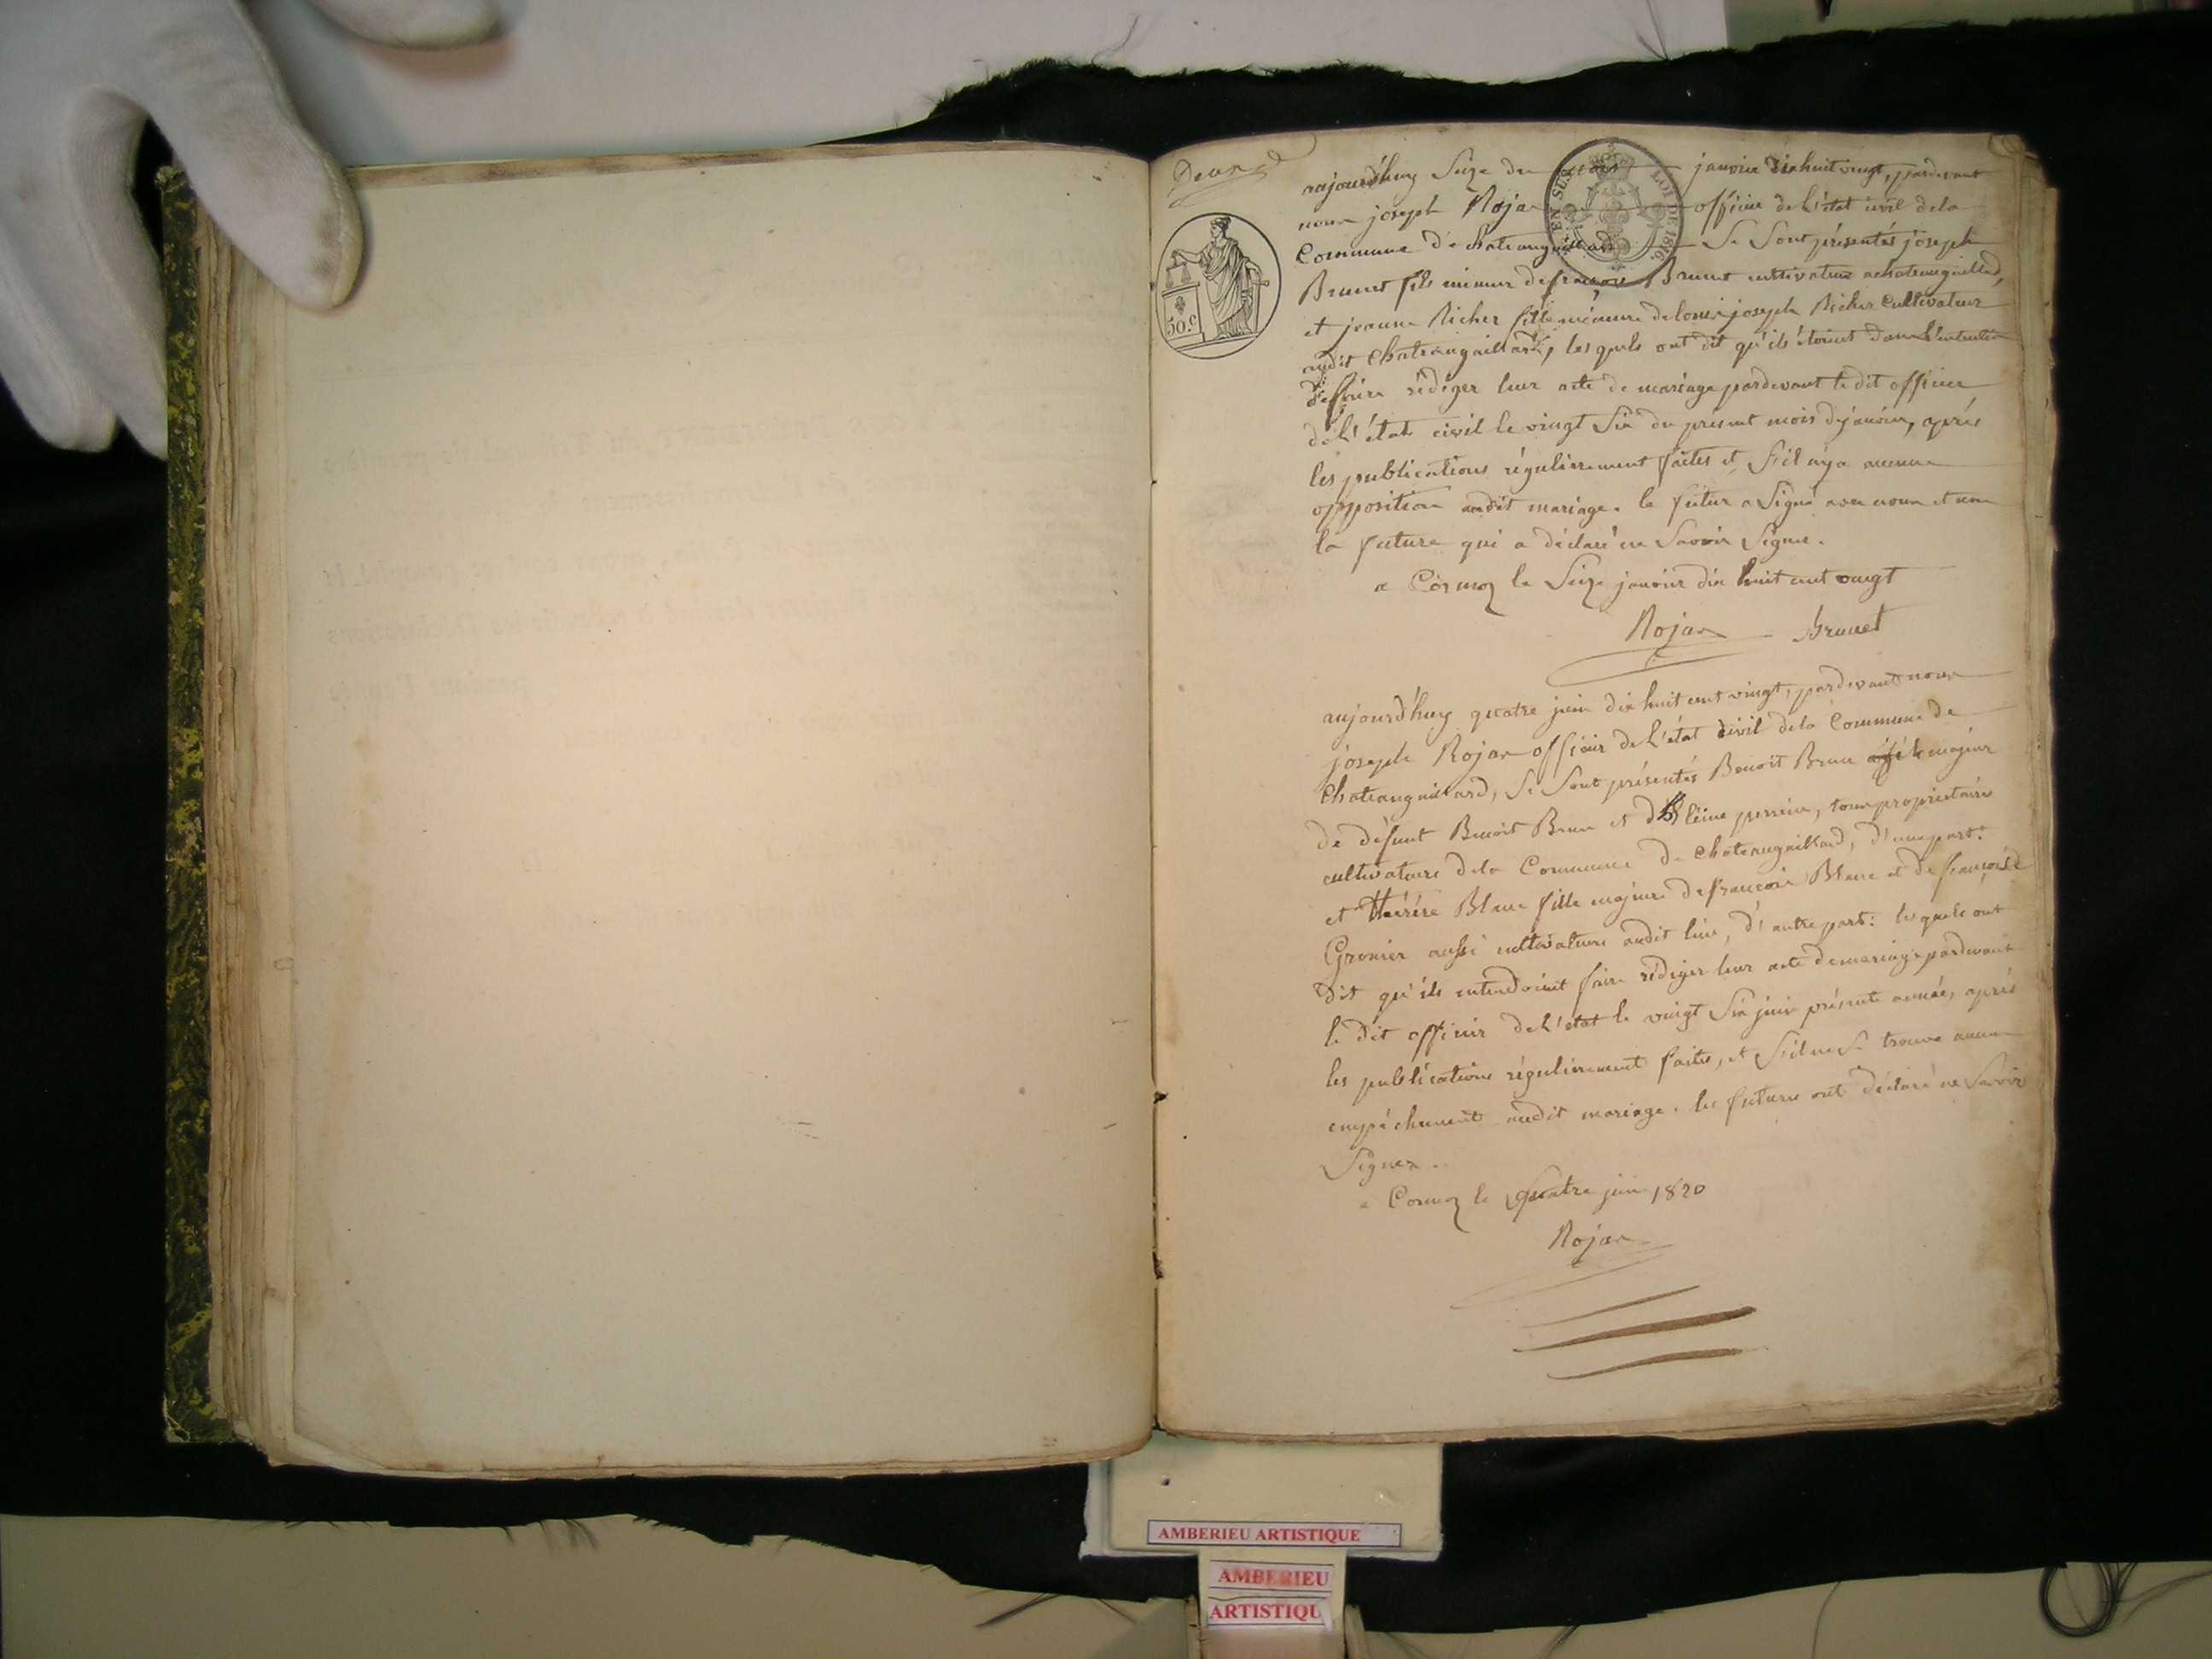 Deux
aujourd'huy Seize du mois janvier dix huit vingt, pardevant
nous joseph Rojar officier de l'état civil dela
Commune de chateaugaillard Se Sont présentés joseph
Brunet fils mineur de françois Brunet cultivateur a chateaugaillard,
et jeanne Richer fille mineure de louis joseph Richer Cultivateur
audit chateaugaillard, les quels ont dit qu'ils étoient dans l'intention
de faire rédiger leur acte de mariage pardevant le dit officier
de l'état civil le vingt Six du présent mois de janvier, après
les publications régulierement faites et S'il n'y a aucune
opposition audit mariage. le futur a Signé avec nous et non
la future qui a déclaré ne Savoir Signer.
a Cormoz le Seize janvier dix huit cent vingt
Rojar Brunet
aujourd'huy quatre juin dix huit cent vingt, pardevant nous
joseph Rojar officier de l'état civil dela Commune de
Chateaugaillard, Se Sont présentés Benoit Brun majeur
de défunt Benoit Brun et d' perrin, tous propriétaires
cultivateurs dela Commune de chateaugaillard, d'une part:
et thérése Blanc fille majeure de francois Blanc et de françoise
Gronier aussi cultivateurs audit lieu, d'autre part: les quels ont
dit qu'ils entendoient faire rédiger leur acte de mariage pardevant
le dit officier de l'état le vingt Six juin présente année, après
les publications régulierement faites, et S'il ne Se trouve aucun
empéchement audit mariage. les futurs ont déclaré ne Savoir
Signer.
a Cormoz le quatre juin 1820
Rojar
50 c
EN SUS
LOI DE 1816.
AMBERIEU ARTISTIQUE
AMBERIEU
ARTISTIQU